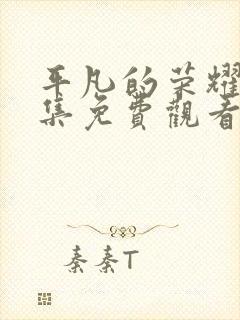 平凡的荣耀
集免費觀看
秦秦T